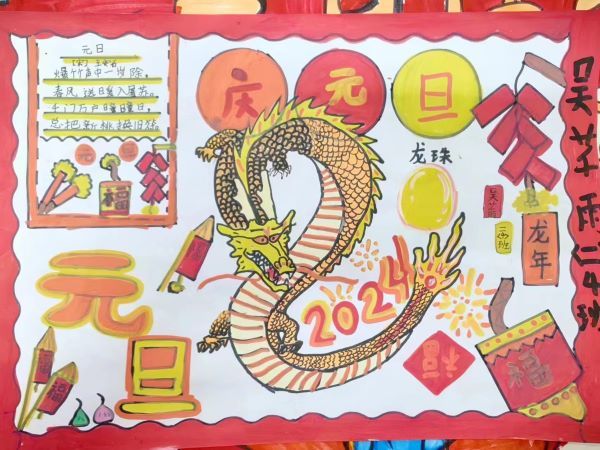 元日
[宋] 王安石
爆竹声中一岁除，
春风送暖入屠苏。
千门万户曈曈日，
总把新桃换旧符。
元 旦
福
庆 元 旦
龙珠
龙年
元
旦
2024
福
福
福
福
吴芊雨二4班